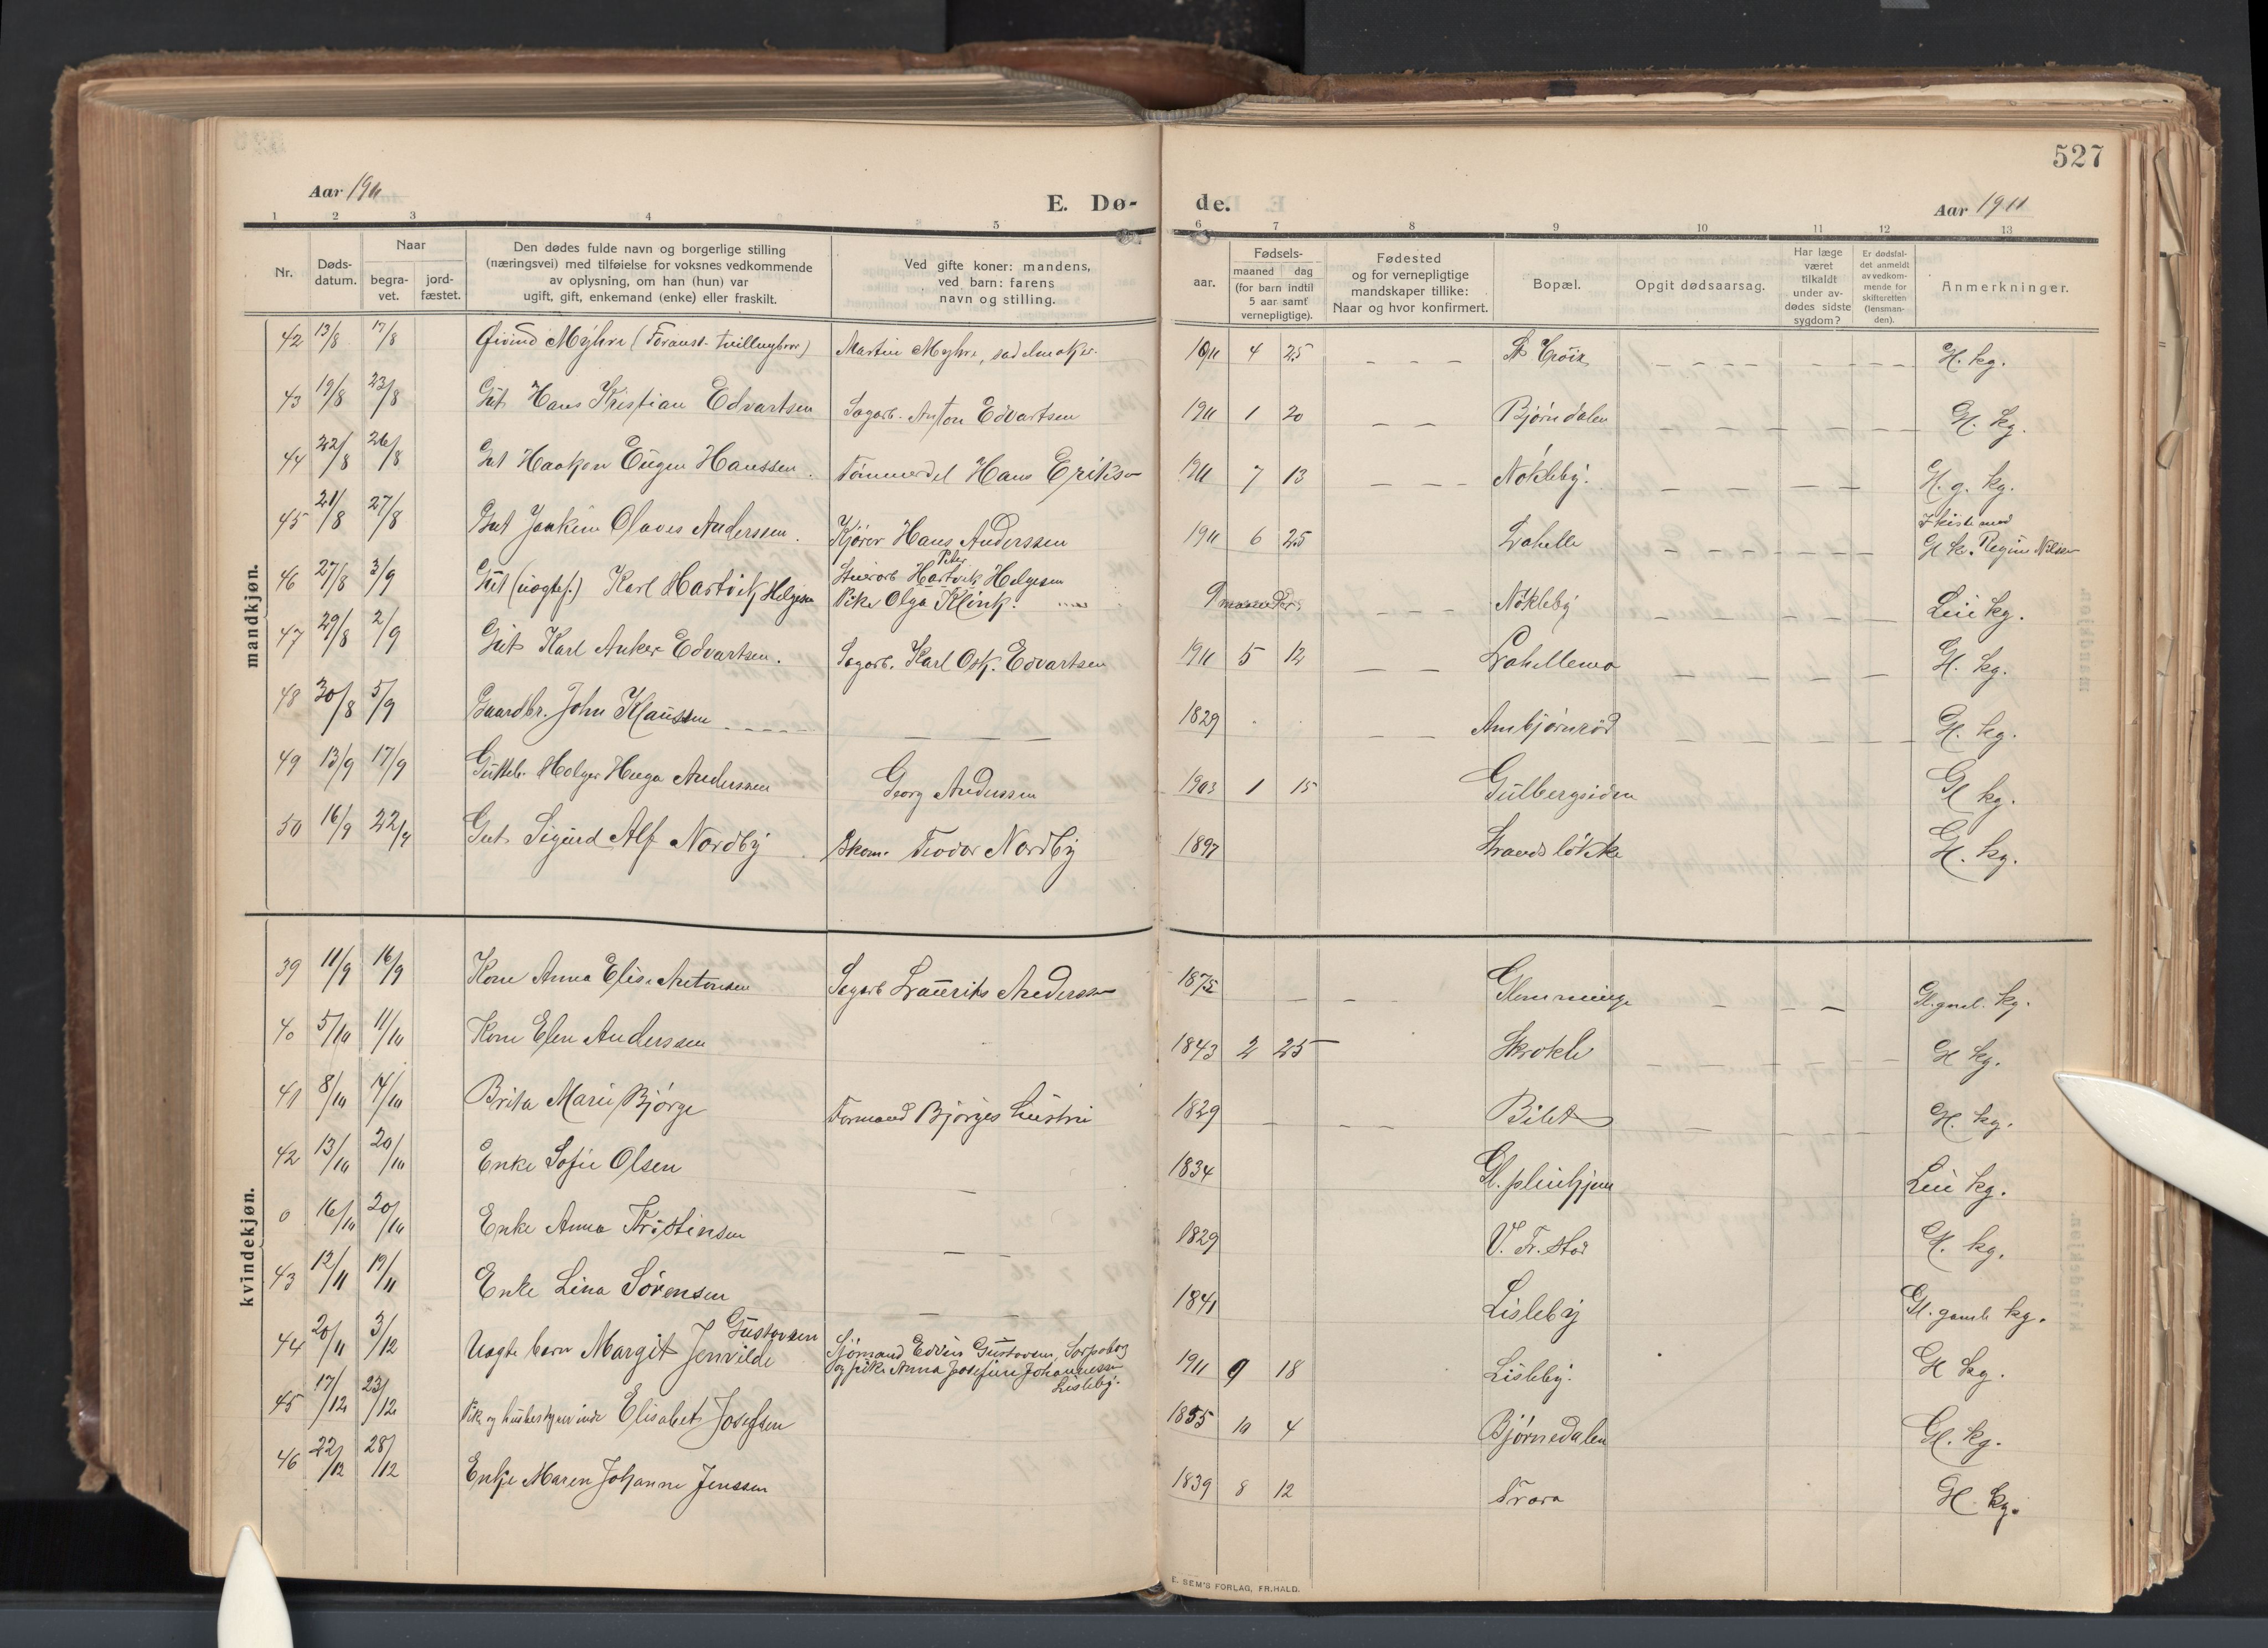 527
Aar 1911
E. Dø-
de.
Aar 1911
1 2 3 4 5 6 7 8 9 10 11 12 13
Nr.
Døds-
datum.
Naar
begra-
vet.
jord-
fæstet.
Den dødes fulde navn og borgerlige stilling
(næringsvei) med tilføielse for voksnes vedkommende
av oplysning, om han (hun) var
ugift, gift, enkemand (enke) eller fraskilt.
Ved gifte koner: mandens,
ved barn: farens
navn og stilling.
Fødsels-
aar.
maaned dag
(for barn indtil
5 aar samt
vernepligtige).
Fødested
og for vernepligtige
mandskaper tillike:
Naar og hvor konfirmert.
Bopæl.
Opgit dødsaarsag.
Har læge
været
tilkaldt
under av-
dødes sidste
sygdom?
Er dødsfal-
det anmeldt
av vedkom-
mende for
skifteretten
(lensman-
den).
Anmerkninger.
mandkjøn.
42 13/8 17/8 Øivind Myhre (Foranst. tvillingbror) Martin Myhre, sadelmaker. 1911 4 25 St Croix Gl. kg.
43 19/8 23/8 Gut Hans Kristian Edvartsen Sagarb. Anton Edvartsen 1911 1 20 Bjørndalen Gl. kg.
44 22/8 26/8 Gut Haakon Eugen Hanssen. Tømmerdel Hans Eriksen 1911 7 13 Nøkleby. Gl. g. kg.
45 21/8 27/8 Gut Joakim Olaves Anderssen. Kjører Hans Anderssen 1911 6 25 Lahelle I kiste med
Gl k. Regine Nilsen
46 27/8 3/9 Gut (uægtef.) Karl Hartvik Helgesen Peter
Hartvik Helgesen
Pike Olga Klink. 9 maaneder Nøkleby Leie kg.
47 29/8 2/9 Gut Karl Anker Edvartsen. Sagarb. Karl Osk. Edvartsen 1911 5 12 Lahellemo Gl. kg.
48 30/8 5/9 Gaardbr. John Klaussen 1829 Ambjørnrød Gl. kg.
49 13/9 17/9 Gutteb. Holger Hugo Anderssen Georg Anderssen 1903 1 15 Gulbergsiden Gl kg.
50 16/9 22/9 Gut Sigurd Alf Nordby Skom. Teodor Nordby 1897 Strandsløkke Gl. kg.
kvindekjøn.
39 11/9 16/9 Kone Anna Elise Antonsen Sagarb Lauriks Anderssen 1875 Glemminge Gl. gaml. kg.
40 5/10 11/10 Kone Elen Anderssen 1843 2 25 Skrokle Gl kg.
41 8/10 14/10 Brita Marie Bjørge Formand Bjørges hustru 1829 Bilet Gl. kg.
42 13/10 20/10 Enke Sofie Olsen 1834 Gl. pleiehjem Leie kg.
0 16/10 20/10 Enke Anna Kristinsen 1829 V. Fr. stad Gl. kg.
43 12/11 19/11 Enke Lina Sørensen 1841 Lisleby Gl. gamle kg.
44 20/11 3/12 Uægte barn Margit Jenvilde Gustavsen Sjømand Edvin Gustavsen, Sarpsborg
og pike Anna Josefine Johannessen
Lisleby. 1911 9 18 Lisleby. Gl kg.
45 17/12 23/12 Pike og husbestyrerinde Elisabet Josefsen 1855 10 4 Bjørnedalen Gl. kg.
46 22/12 28/12 Enke Maren Johanne Jenssen 1839 8 12 Trara Gl. kg.
E. SEM'S FORLAG, FR.HALD.